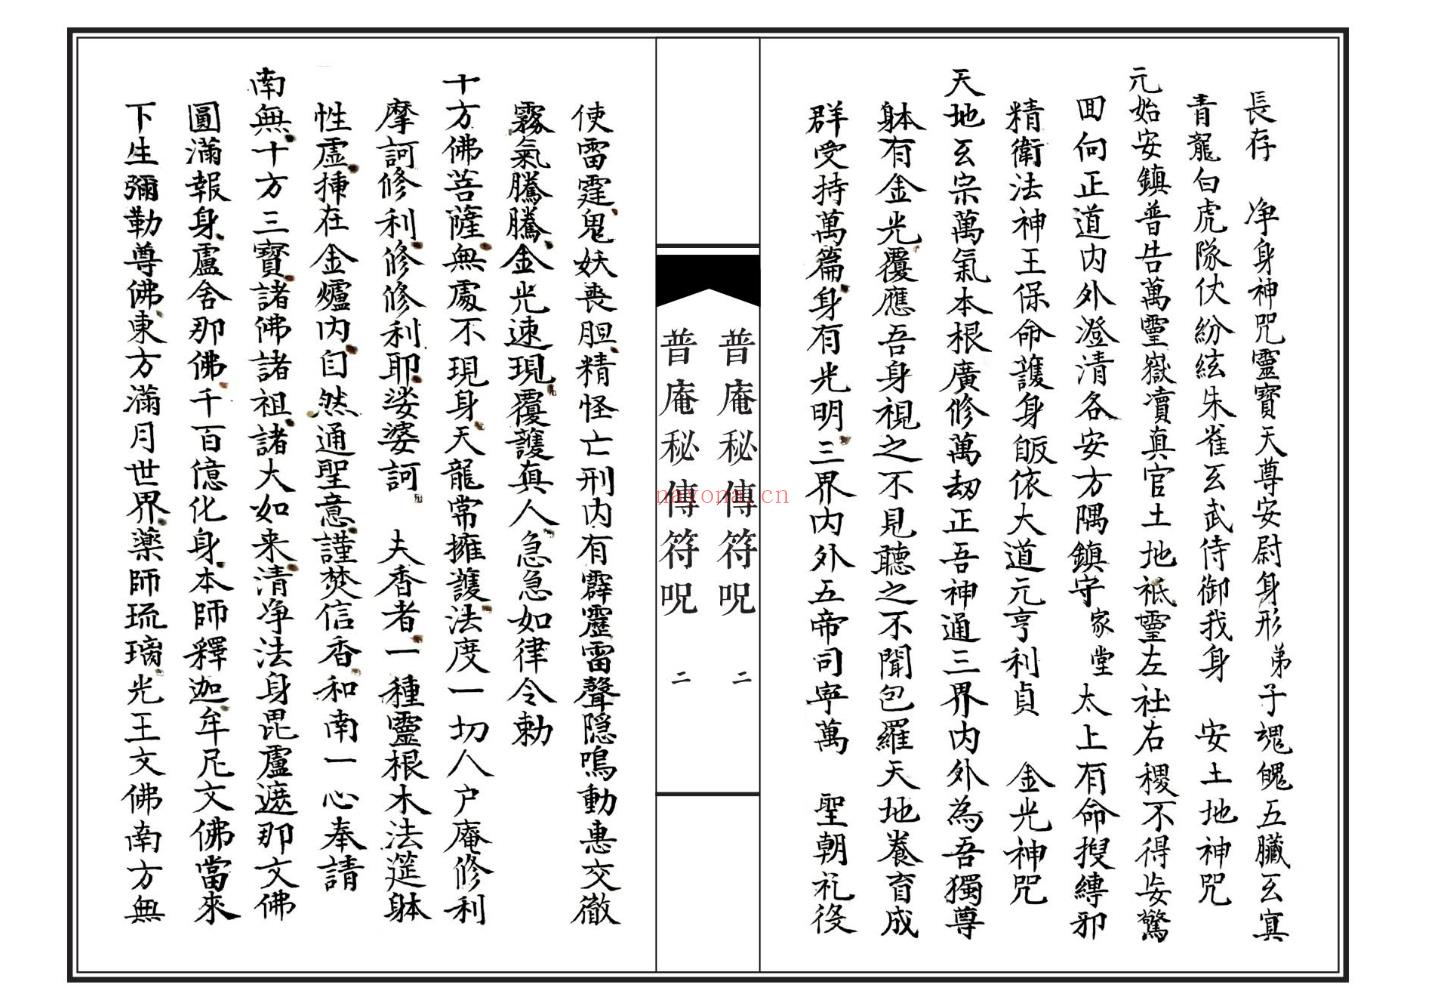 長存　净身神咒靈寶天尊安尉身形弟子魂魄五臟玄寘
青龍白虎隊仗紛紜朱雀玄武侍御我身　安土地神咒
元始安鎮普告萬靈嶽瀆真官土地祇靈左社右稷不得妄驚
囬向正道内外澄清各安方隅鎮守家堂太上有命搜縛邪
精衛法神王保命護身皈依大道元亨利貞　金光神咒
天地玄宗萬氣本根廣修萬刼正吾神通三界内外為吾獨尊
躰有金光覆應吾身視之不見聽之不聞包羅天地養育成
群受持萬篇身有光明三界内外五帝司寧萬　聖朝礼役
普庵秘傳符呪　二
普庵秘傳符呪　二
使雷霆鬼妖喪胆精怪亡刑内有霹靂雷聲隠鳴動惠交徹
霧氣騰騰金光速現覆護真人急急如律令勅
十方佛菩薩無處不現身天龍常擁護法度一切人户庵修利
摩訶修利修修利耶娑婆訶　夫香者一種靈根木法莚躰
性虛揷在金爐内自然通聖意謹焚信香和南一心奉請
南無十方三寳諸佛諸祖諸大如来清净法身毘盧遮那文佛
圓滿報身盧舍那佛千百億化身本師釋迦牟尼文佛當來
下生彌勒尊佛東方滿月世界藥師琉璃光王文佛南方無
nayona.cn